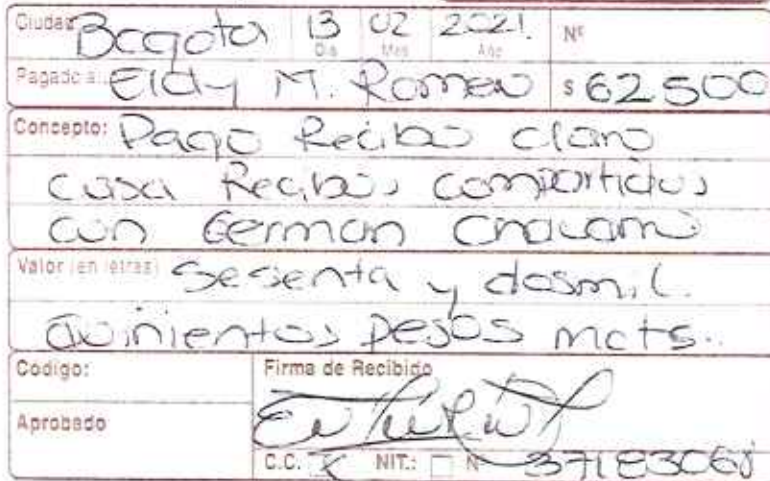 Ciudad Bogota 13 02 2021. Nº
Dia Mes Año
Pagado a: Eldy M. Romero $ 62.500
Concepto: Pago Recibo claro
casa Recibos compartidos
con German
Valor (en letras) Sesenta y dosmil.
Quinientos pesos mcts..
Codigo: Firma de Recibido
Aprobado
C.C. X NIT.: Nº 37183068